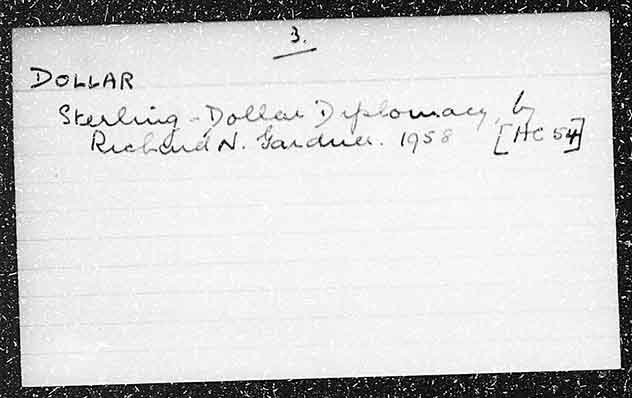 3.
DOLLAR
Sterling-Dollar Diplomacy, by
Richard N. Gardner. 1958 [HC 54]